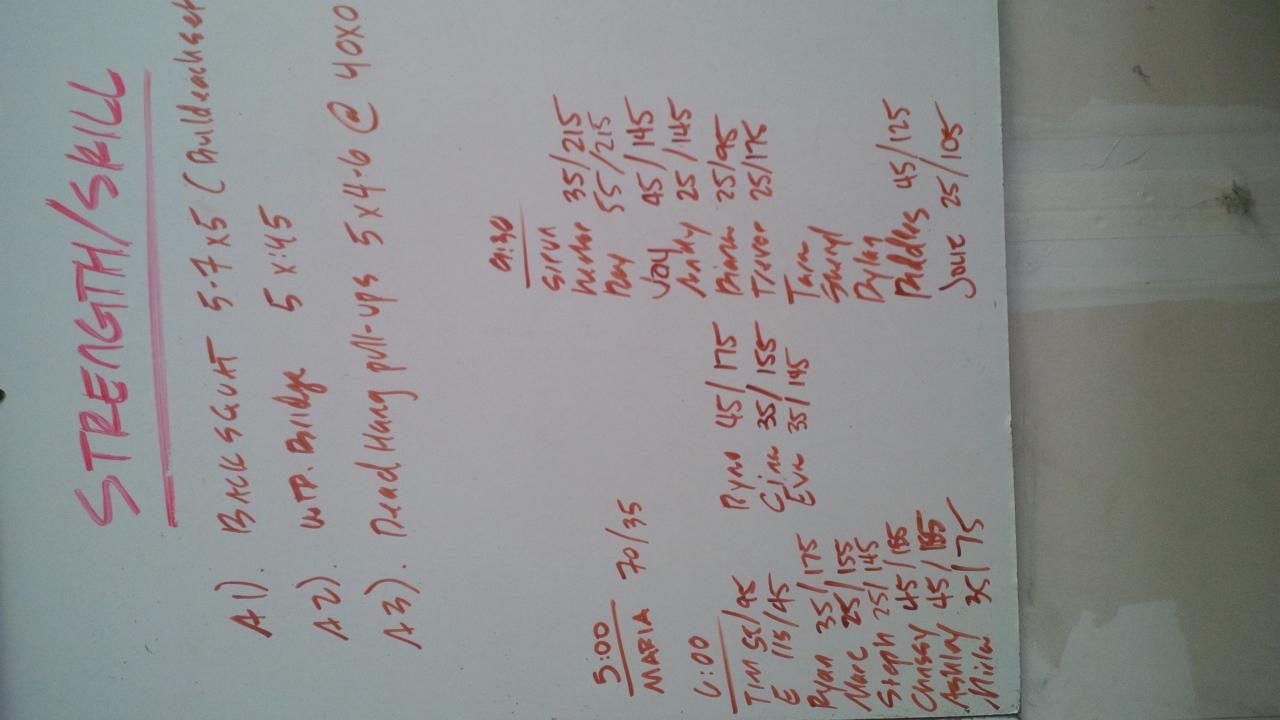 STRENGTH/SKILL
A1). BACK SQUAT 5-7 x 5 (Build each set
A2). WTD. Bridge 5 x :45
A3). Dead Hang pull-ups 5 x 4-6 @ 40X0
5:00
MARIA 70/35
6:00
TIM 55/95
E 115/45
Ryan 35/175
Marc 25/155
Steph 25/145
Chrissy 45/155
Ashley 45/155
35/75
Ryno 45/175
35/155
35/145
9:30
35/215
Ray 55/215
Jay 45/145
25/145
25/95
Trevor 25/175
Tara
Sheryl
Dylan
Puddles 45/125
25/105